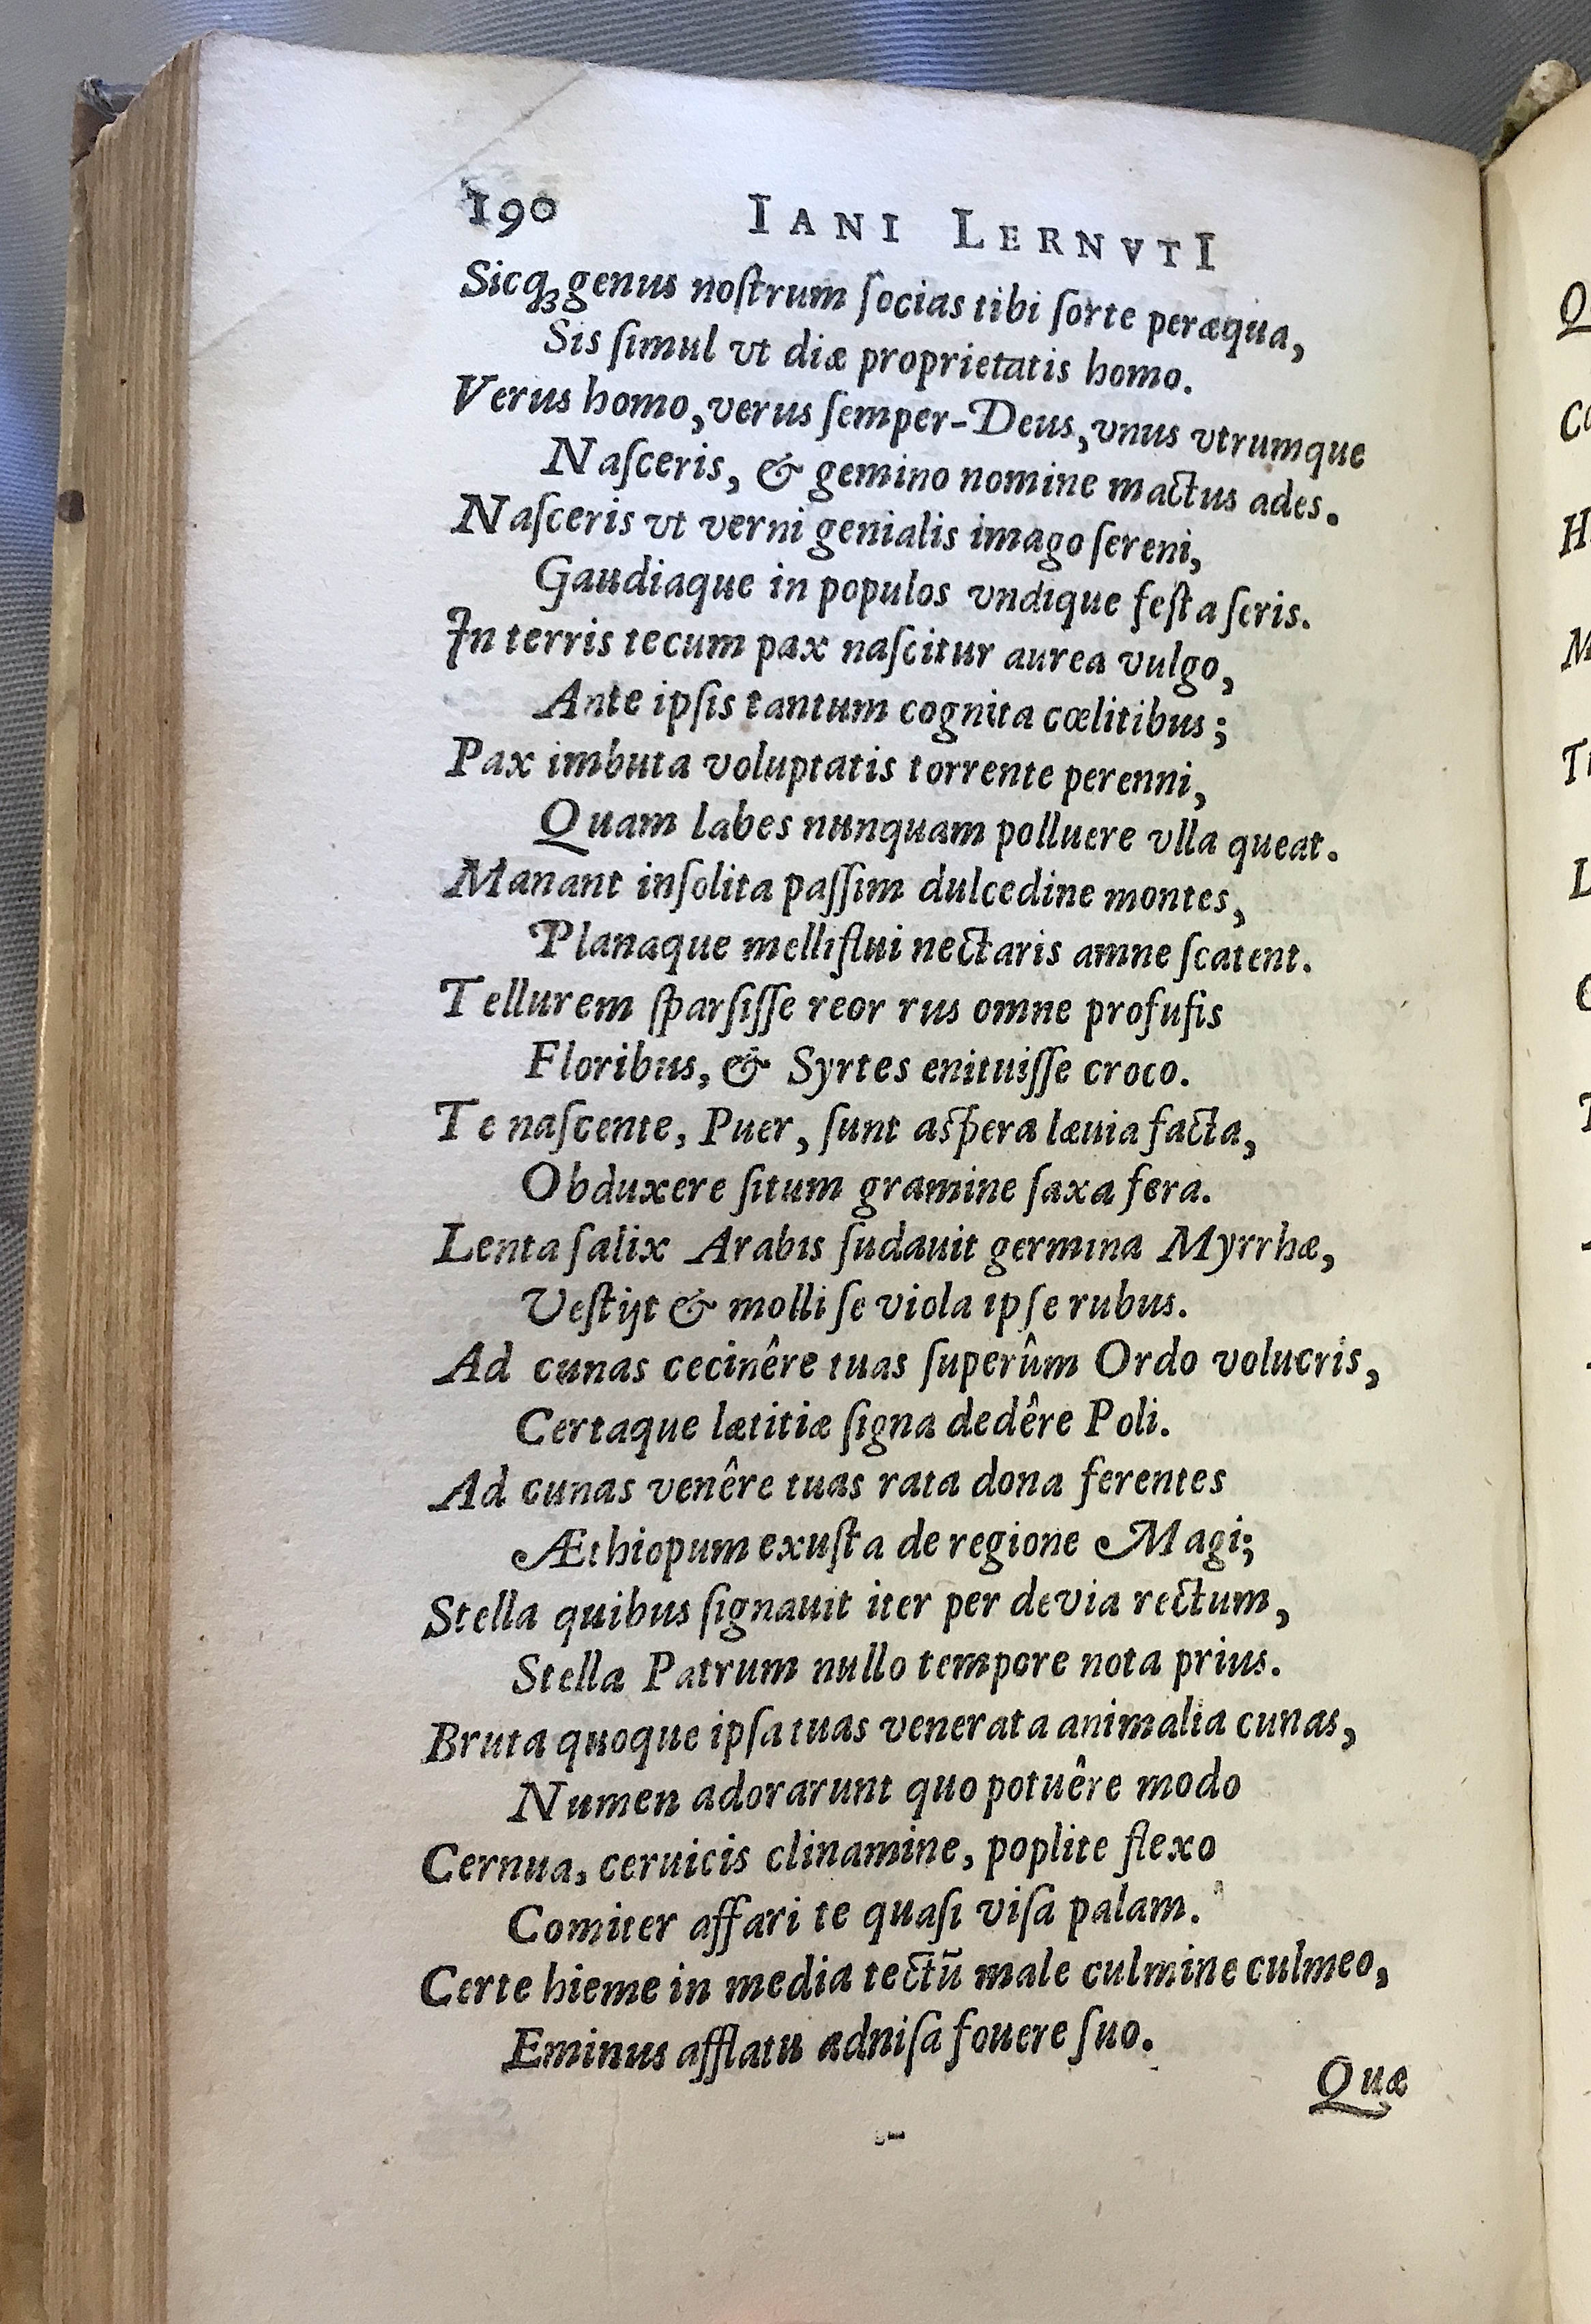 190 IANI LERNVTI
Sicq; genus noſtrum ſocias tibi ſorte peræqua,
Sis ſimul vt diæ proprietatis homo.
Verus homo, verus ſemper-Deus, vnus vtrumque
Naſceris, & gemino nomine mactus ades.
Naſceris vt verni genialis imago ſereni,
Gaudiaque in populos vndique feſta ſeris.
In terris tecum pax naſcitur aurea vulgo,
Ante ipſis tantum cognita cœlitibus;
Pax imbuta voluptatis torrente perenni,
Quam labes nunquam polluere vlla queat.
Manant inſolita paſſim dulcedine montes,
Planaque melliflui nectaris amne ſcatent.
Tellurem ſparſiſſe reor rus omne profuſis
Floribus, & Syrtes enituiſſe croco.
Te naſcente, Puer, ſunt aſpera læuia facta,
Obduxere ſitum gramine ſaxa fera.
Lenta ſalix Arabis ſudauit germina Myrrhæ,
Veſtijt & molli ſe viola ipſe rubus.
Ad cunas cecinêre tuas ſuperûm Ordo volucris,
Certaque lætitiæ ſigna dedêre Poli.
Ad cunas venêre tuas rata dona ferentes
Æthiopum exuſta de regione Magi;
Stella quibus ſignauit iter per devia rectum,
Stella Patrum nullo tempore nota prius.
Bruta quoque ipſa tuas venerata animalia cunas,
Numen adorarunt quo potuêre modo
Cernua, ceruicis clinamine, poplite flexo
Comiter affari te quaſi viſa palam.
Certe hieme in media tectū male culmine culmeo,
Eminus afflatu adniſa fouere ſuo.
Quæ